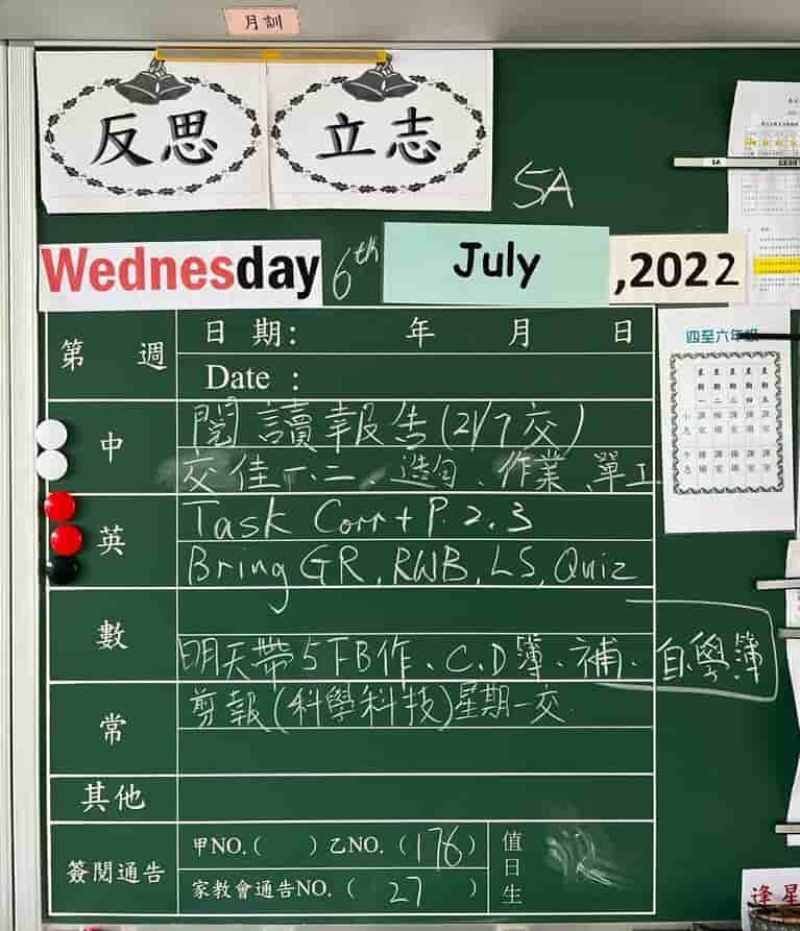 月訓
反思 立志
5A
Wednesday 6th July ,2022
第 週
日 期: 年 月 日
Date :
中
閱讀報告(21/7交)
交佳一、二、造句、作業、單工
英
Task Corr + P.2.3
Bring GR, RWB, LS, Quiz
數
明天帶5下B作、C.D簿、補、自學簿
常
剪報(科學科技)星期一交
其他
簽閱通告
甲NO.( ) 乙NO.(176)
家教會通告NO.( 27 )
值日生
四至六年班
逢星